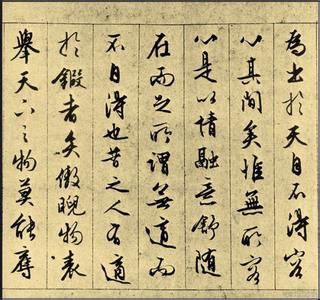 為出於天自不得容
心其間矣惟無所容
心是以情融意舒隨
在而足所謂無適而
不自得也昔之人有適
於鍛者矣傲睨物表
舉天下之物莫能辱